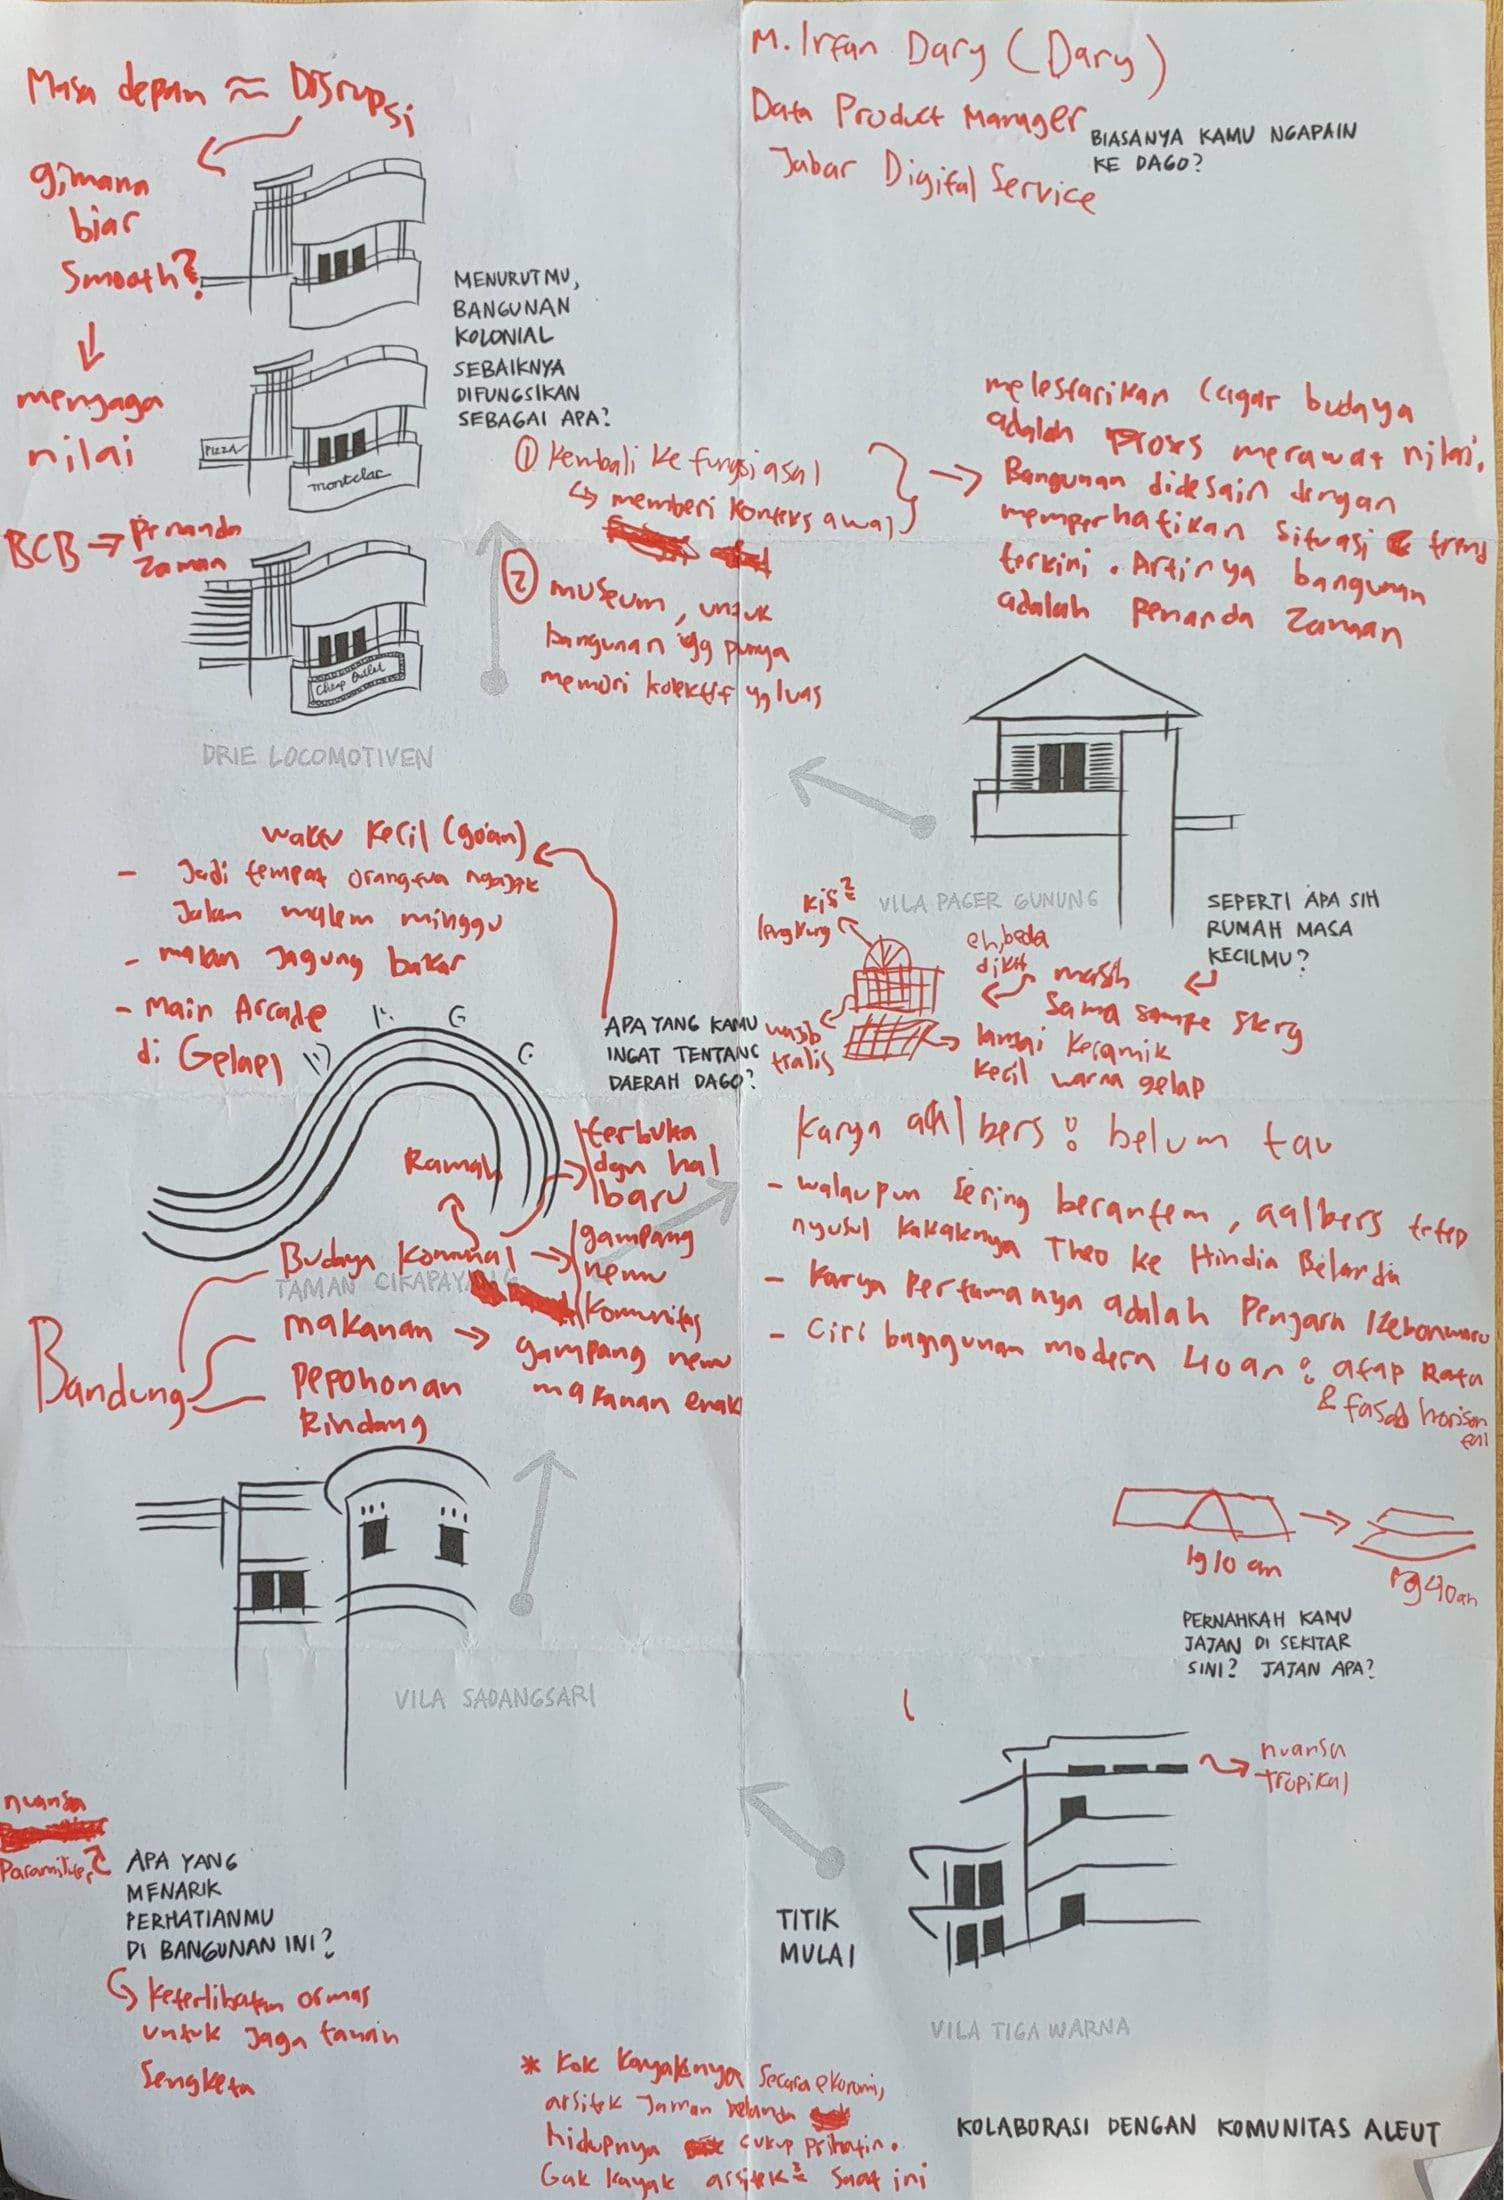 M. Irfan Dary (Dary)
Data Product Manager
Jabar Digital Service
BIASANYA KAMU NGAPAIN
KE DAGO?
Masa depan ≈ Disrupsi
gimana
biar
smooth?
menjaga
nilai
BCB → Penanda
Zaman
MENURUTMU,
BANGUNAN
KOLONIAL
SEBAIKNYA
DIFUNGSIKAN
SEBAGAI APA?
PIZZA
montclac
Cheap Outlet
① Kembali ke fungsi asal
↳ memberi konteks awal
② museum, untuk
bangunan yg punya
memori kolektif yg luas
DRIE LOCOMOTIVEN
→ melestarikan cagar budaya
adalah proses merawat nilai,
Bangunan didesain dengan
memperhatikan situasi & trend
terkini. Artinya bangunan
adalah penanda zaman
VILA PAGER GUNUNG
SEPERTI APA SIH
RUMAH MASA
KECILMU?
masih
sama sampe skrg
eh, beda
dikit
kis²
lengkung
wajib
tralis
lantai keramik
kecil warna gelap
waktu kecil (90an)
- Jadi tempat orangtua ngajak
Jalan malem minggu
- makan Jagung bakar
- main Arcade
di Gelael
APA YANG KAMU
INGAT TENTANG
DAERAH DAGO?
Ramah
terbuka
dgn hal
baru
Bandung
Budaya Komunal →
gampang
nemu
komunitas
TAMAN CIKAPAYANG
makanan → gampang nemu
makanan enak
Pepohonan
Rindang
Karya aalbers : belum tau
- walaupun sering berantem, aalbers tetep
nyusul kakaknya Theo ke Hindia Belanda
- Karya Pertamanya adalah Penjara Kebonwaru
- Ciri bangunan modern 40an : atap Rata
& fasad horison
tal
1910an
1940an
PERNAHKAH KAMU
JAJAN DI SEKITAR
SINI? JAJAN APA?
VILA SADANGSARI
nuansa
APA YANG
MENARIK
PERHATIANMU
DI BANGUNAN INI?
↳ Keterlibatan ormas
untuk Jaga tanah
Sengketa
nuansa
tropikal
TITIK
MULAI
VILA TIGA WARNA
* Kok Kayaknya Secara ekonomi,
arsitek Jaman belanda
hidupnya cukup prihatin.
Gak kayak arsitek² saat ini
KOLABORASI DENGAN KOMUNITAS ALEUT